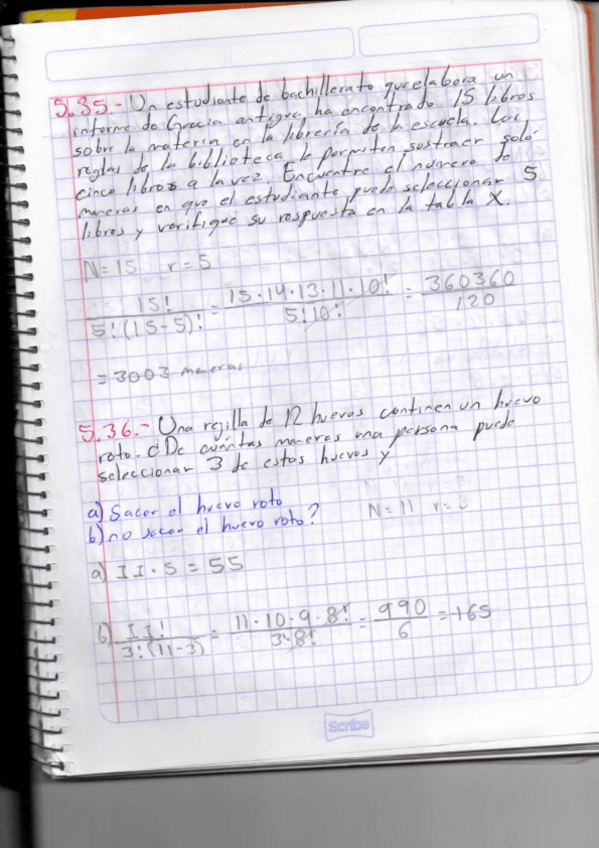 5.35.- Un estudiante de bachillerato que elabora un
informe de Grecia antigua, ha encontrado 15 libros
sobre la materia en la librería de la escuela. Las
reglas de la biblioteca le permiten sustraer solo
cinco libros a la vez. Encuentre el numero de
maneras en que el estudiante puede seleccionar 5
libros y verifique su respuesta en la tabla X.
N=15 r=5
15! / 5!(15-5)! = 15·14·13·11·10! / 5!10! = 360360 / 120
= 3003 maneras
5.36.- Una rejilla de 12 huevos continen un huevo
roto. ¿De cuántas maneras una persona puede
seleccionar 3 de estos huevos y
a) Sacar el huevo roto
b) no sacar el huevo roto? N=11 r=
a) II·5 = 55
b) II! / 3!(11-3) = 11·10·9·8! / 3·8! = 990 / 6 = 165
Scribe